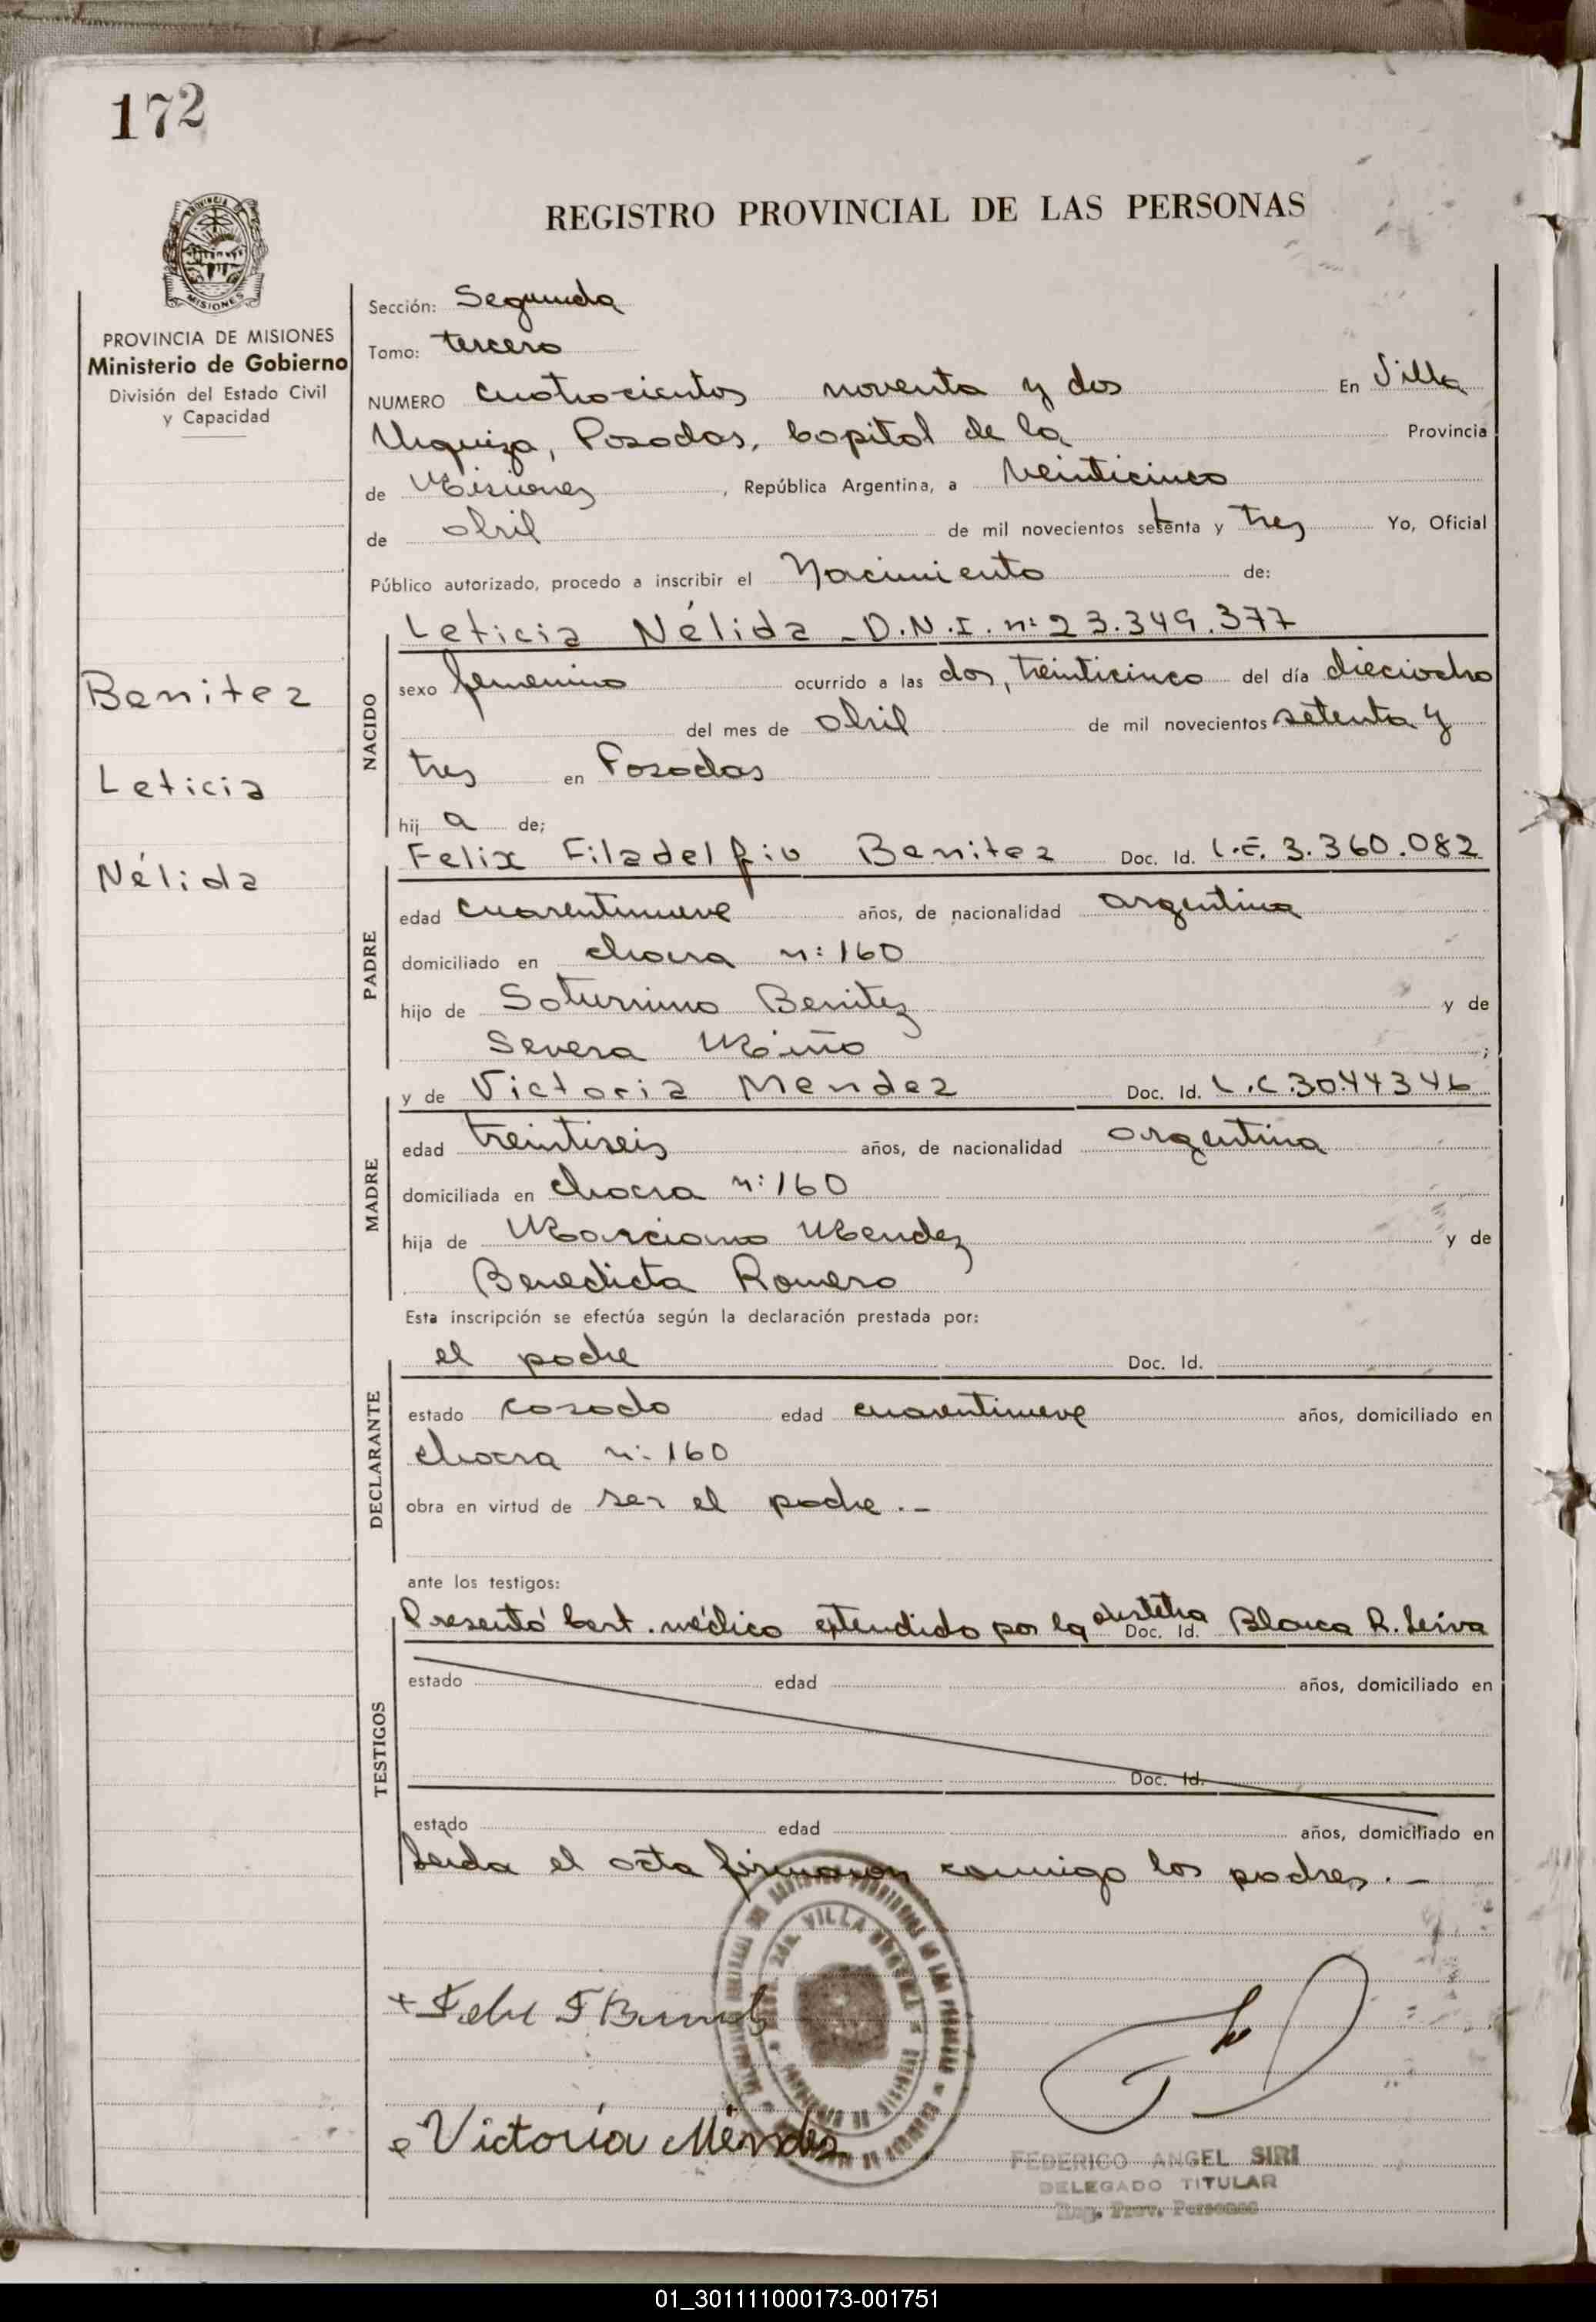 172
REGISTRO PROVINCIAL DE LAS PERSONAS
PROVINCIA DE MISIONES
Ministerio de Gobierno
División del Estado Civil
y Capacidad
Benitez
Leticia
Nélida
Sección: Segunda
Tomo: tercero
NUMERO cuatrocientos noventa y dos En Villa
Urquiza, Posadas, Capital de la Provincia
de Misiones, República Argentina, a veinticinco
de abril de mil novecientos setenta y tres Yo, Oficial
Público autorizado, procedo a inscribir el Nacimiento de:
NACIDO
Leticia Nélida - D.N.I. n: 23.349.377
sexo femenino ocurrido a las dos, treinticinco del día dieciocho
del mes de abril de mil novecientos setenta y
tres en Posadas
hij a de;
PADRE
Felix Filadelfio Benitez Doc. Id. L.E. 3.360.082
edad cuarentinueve años, de nacionalidad argentina
domiciliado en chacra n: 160
hijo de Saturnino Benitez y de
Severa Miño ;
MADRE
y de Victoria Mendez Doc. Id. L.C. 3044346
edad treintiseis años, de nacionalidad argentina
domiciliada en chacra n: 160
hija de Marciano Mendez y de
Benedicta Romero
Esta inscripción se efectúa según la declaración prestada por:
DECLARANTE
el padre Doc. Id.
estado casado edad cuarentinueve años, domiciliado en
chacra n: 160
obra en virtud de ser el padre.-
TESTIGOS
ante los testigos:
Presentó Cert. médico extendido por la obstetra Doc. Id. Blanca R. Leiva
estado edad años, domiciliado en
Doc. Id.
estado edad años, domiciliado en
Leída el acta firmaron conmigo los padres.-
VILLA URQUIZA
Victoria Méndez
FEDERICO ANGEL SIRI
DELEGADO TITULAR
Reg. Prov. Personas
01_301111000173-001751